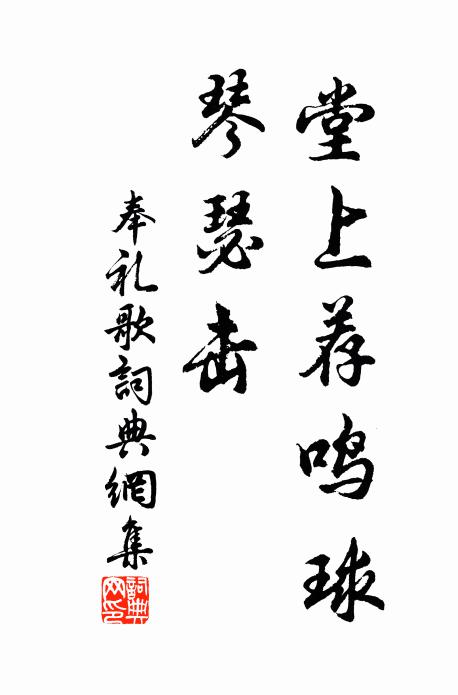 堂上荐鸣球
琴瑟击
奉礼歌詞典網集
詞典网印